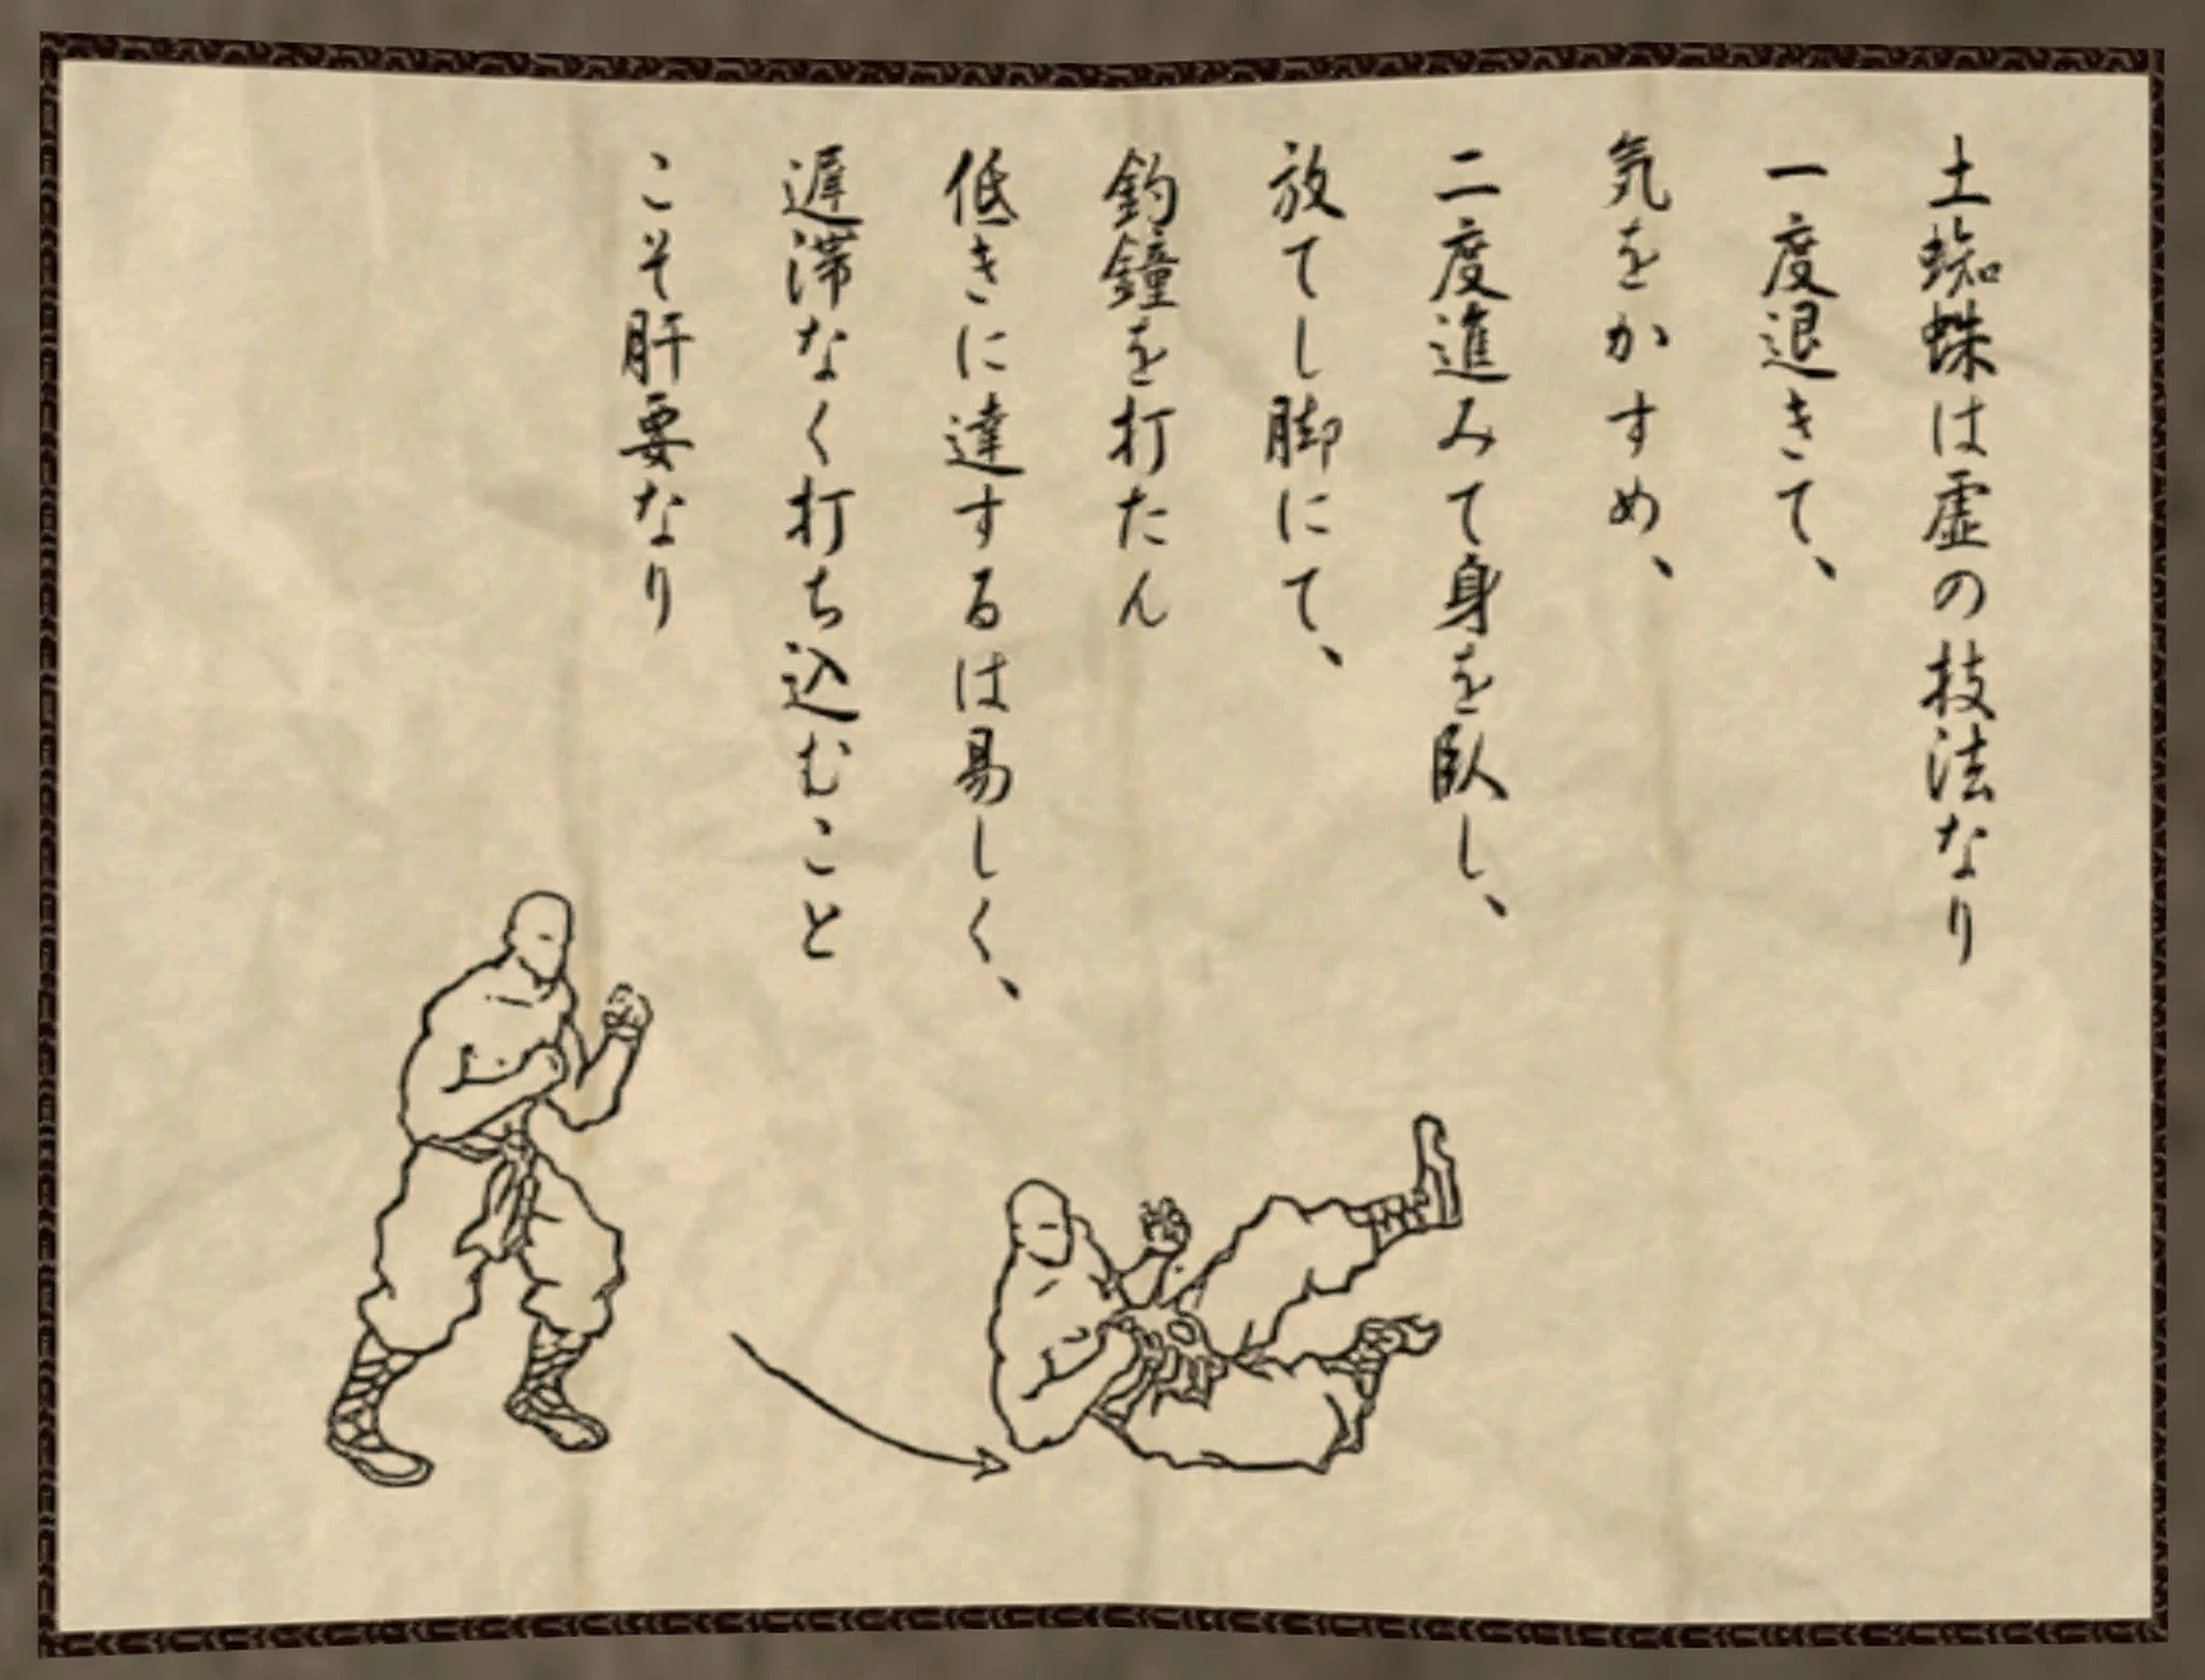 土蜘蛛は虚の技法なり
一度退きて、
気をかすめ、
二度進みて身を臥し、
放てし脚にて、
釣鐘を打たん
低きに達するは易しく、
遅滞なく打ち込むこと
こそ肝要なり